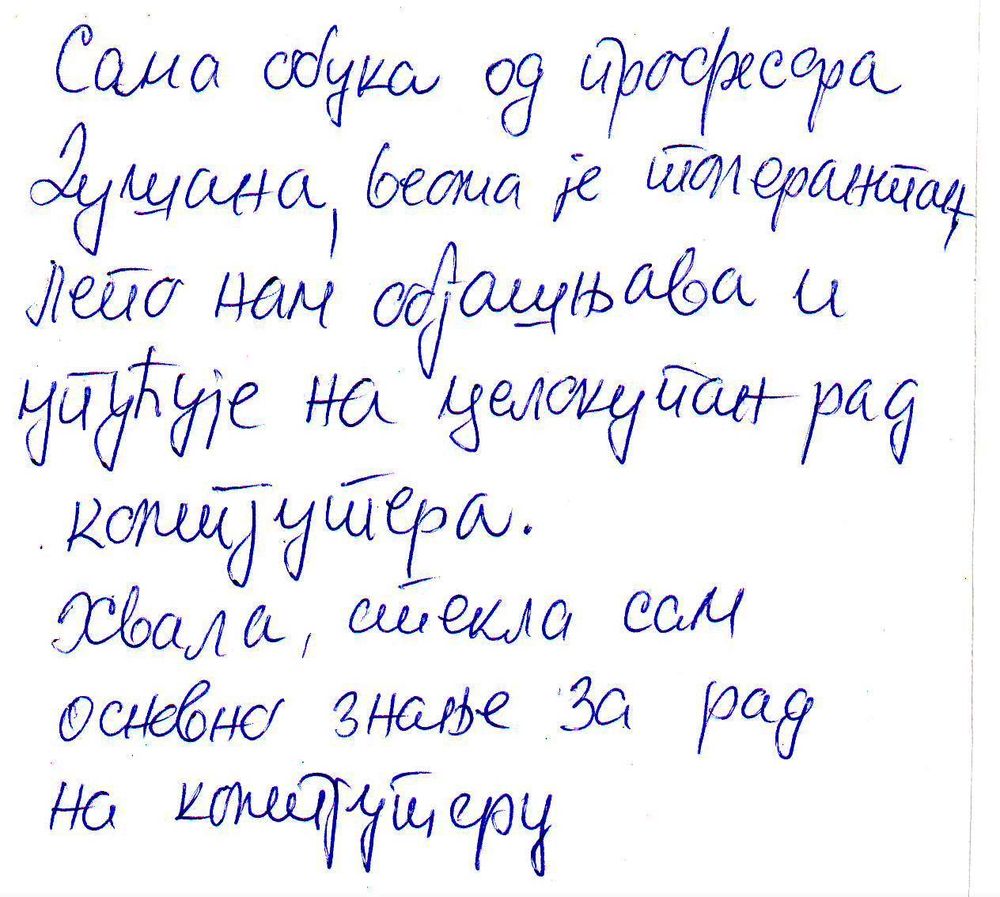 Сама обука од професора
Душана, веома је толерантан,
лепо нам објашњава и
упућује на целокупан рад
компјутера.
Хвала, стекла сам
основно знање за рад
на компјутеру